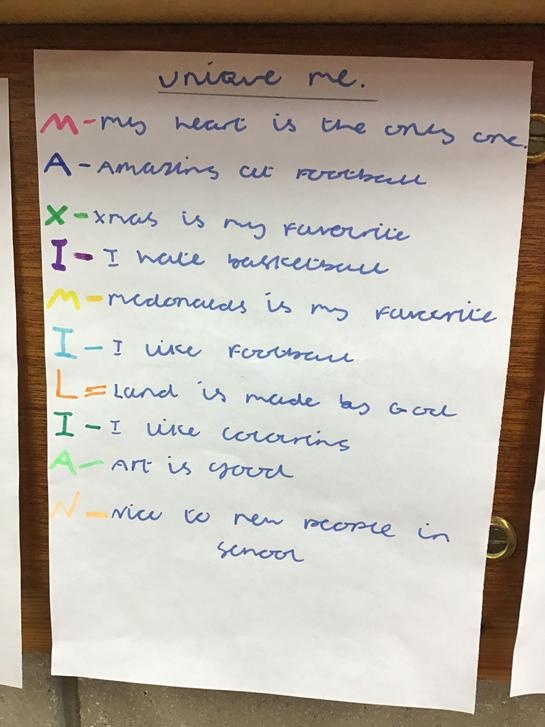 unique me.
M-my heart is the only one.
A-Amazing at football
X-xmas is my favorite
I-I hate basketball
M-mcdonalds is my favorite
I-I like football
L=Land is made by God
I-I like coloring
A-Art is good
N-Nice to new people in
school